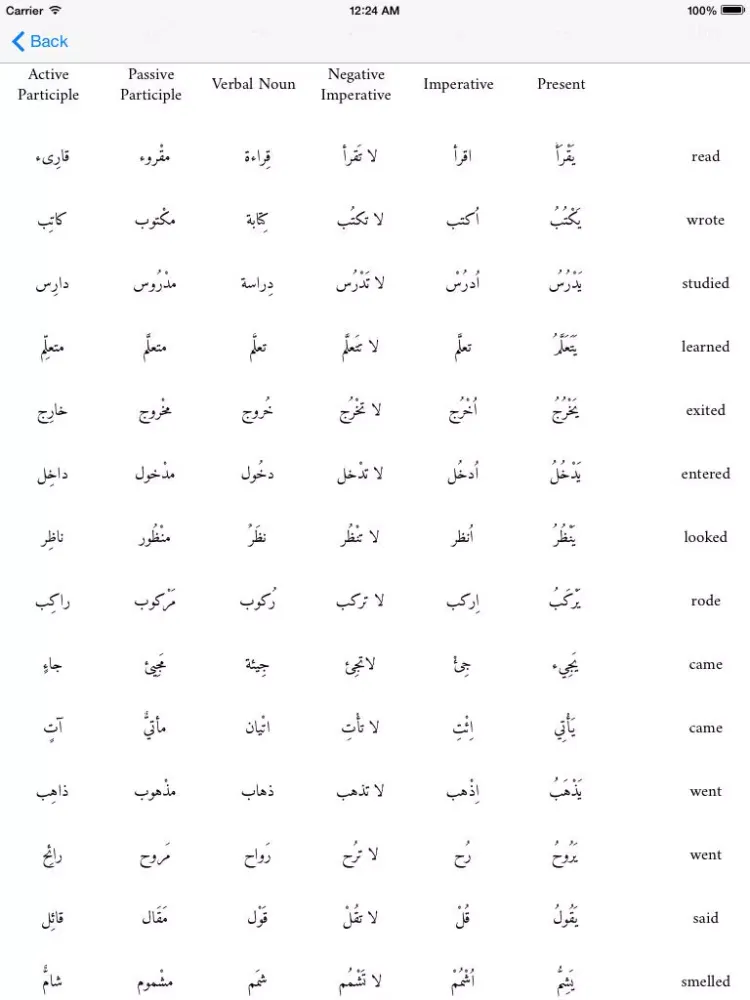 Carrier 12:24 AM 100%
Back
Active Participle Passive Participle Verbal Noun Negative Imperative Imperative Present
قارِىء مقْروء قِراءة لا تَقرأ اقرأ يَقْرَأْ read
كاتِب مكْتوب كِتابة لا تكتُب اُكتب يَكْتُبُ wrote
دارِس مدْرُوس دِراسة لا تَدْرُس اُدرُسْ يَدْرُسُ studied
متعلِّم متعلَّم تعلَّم لا تَتَعلَّم تعلَّم يَتَعَلَّمُ learned
خارِج مخْروج خُروج لا تخْرُج اُخْرُج يَخْرُجُ exited
داخِل مدْخول دخُول لا تدْخل اُدخُل يَدْخُلُ entered
ناظِر منْظُور نظَرُ لا تنْظُر اُنظر يَنْظُرُ looked
راكِب مَرْكوب رُكوب لا تركب اِركب يَرْكَبُ rode
جاءٍ مَجِيئ جِيئة لاتجِئ جِئْ يَجِيء came
آتٍ مأتيٌّ اتْيان لا تأْتِ اِئْتِ يَأْتِي came
ذاهِب مذْهوب ذهاب لا تذهب اِذْهب يَذْهَبُ went
رائِح مَروح رَواح لا ترُح رُح يَرُوحُ went
قائِل مَقَال قَوْل لا تقُلْ قُلْ يَقُولُ said
شامٌّ مشْموم شمَم لا تَشْمُم اُشْمُمْ يَشِمُّ smelled